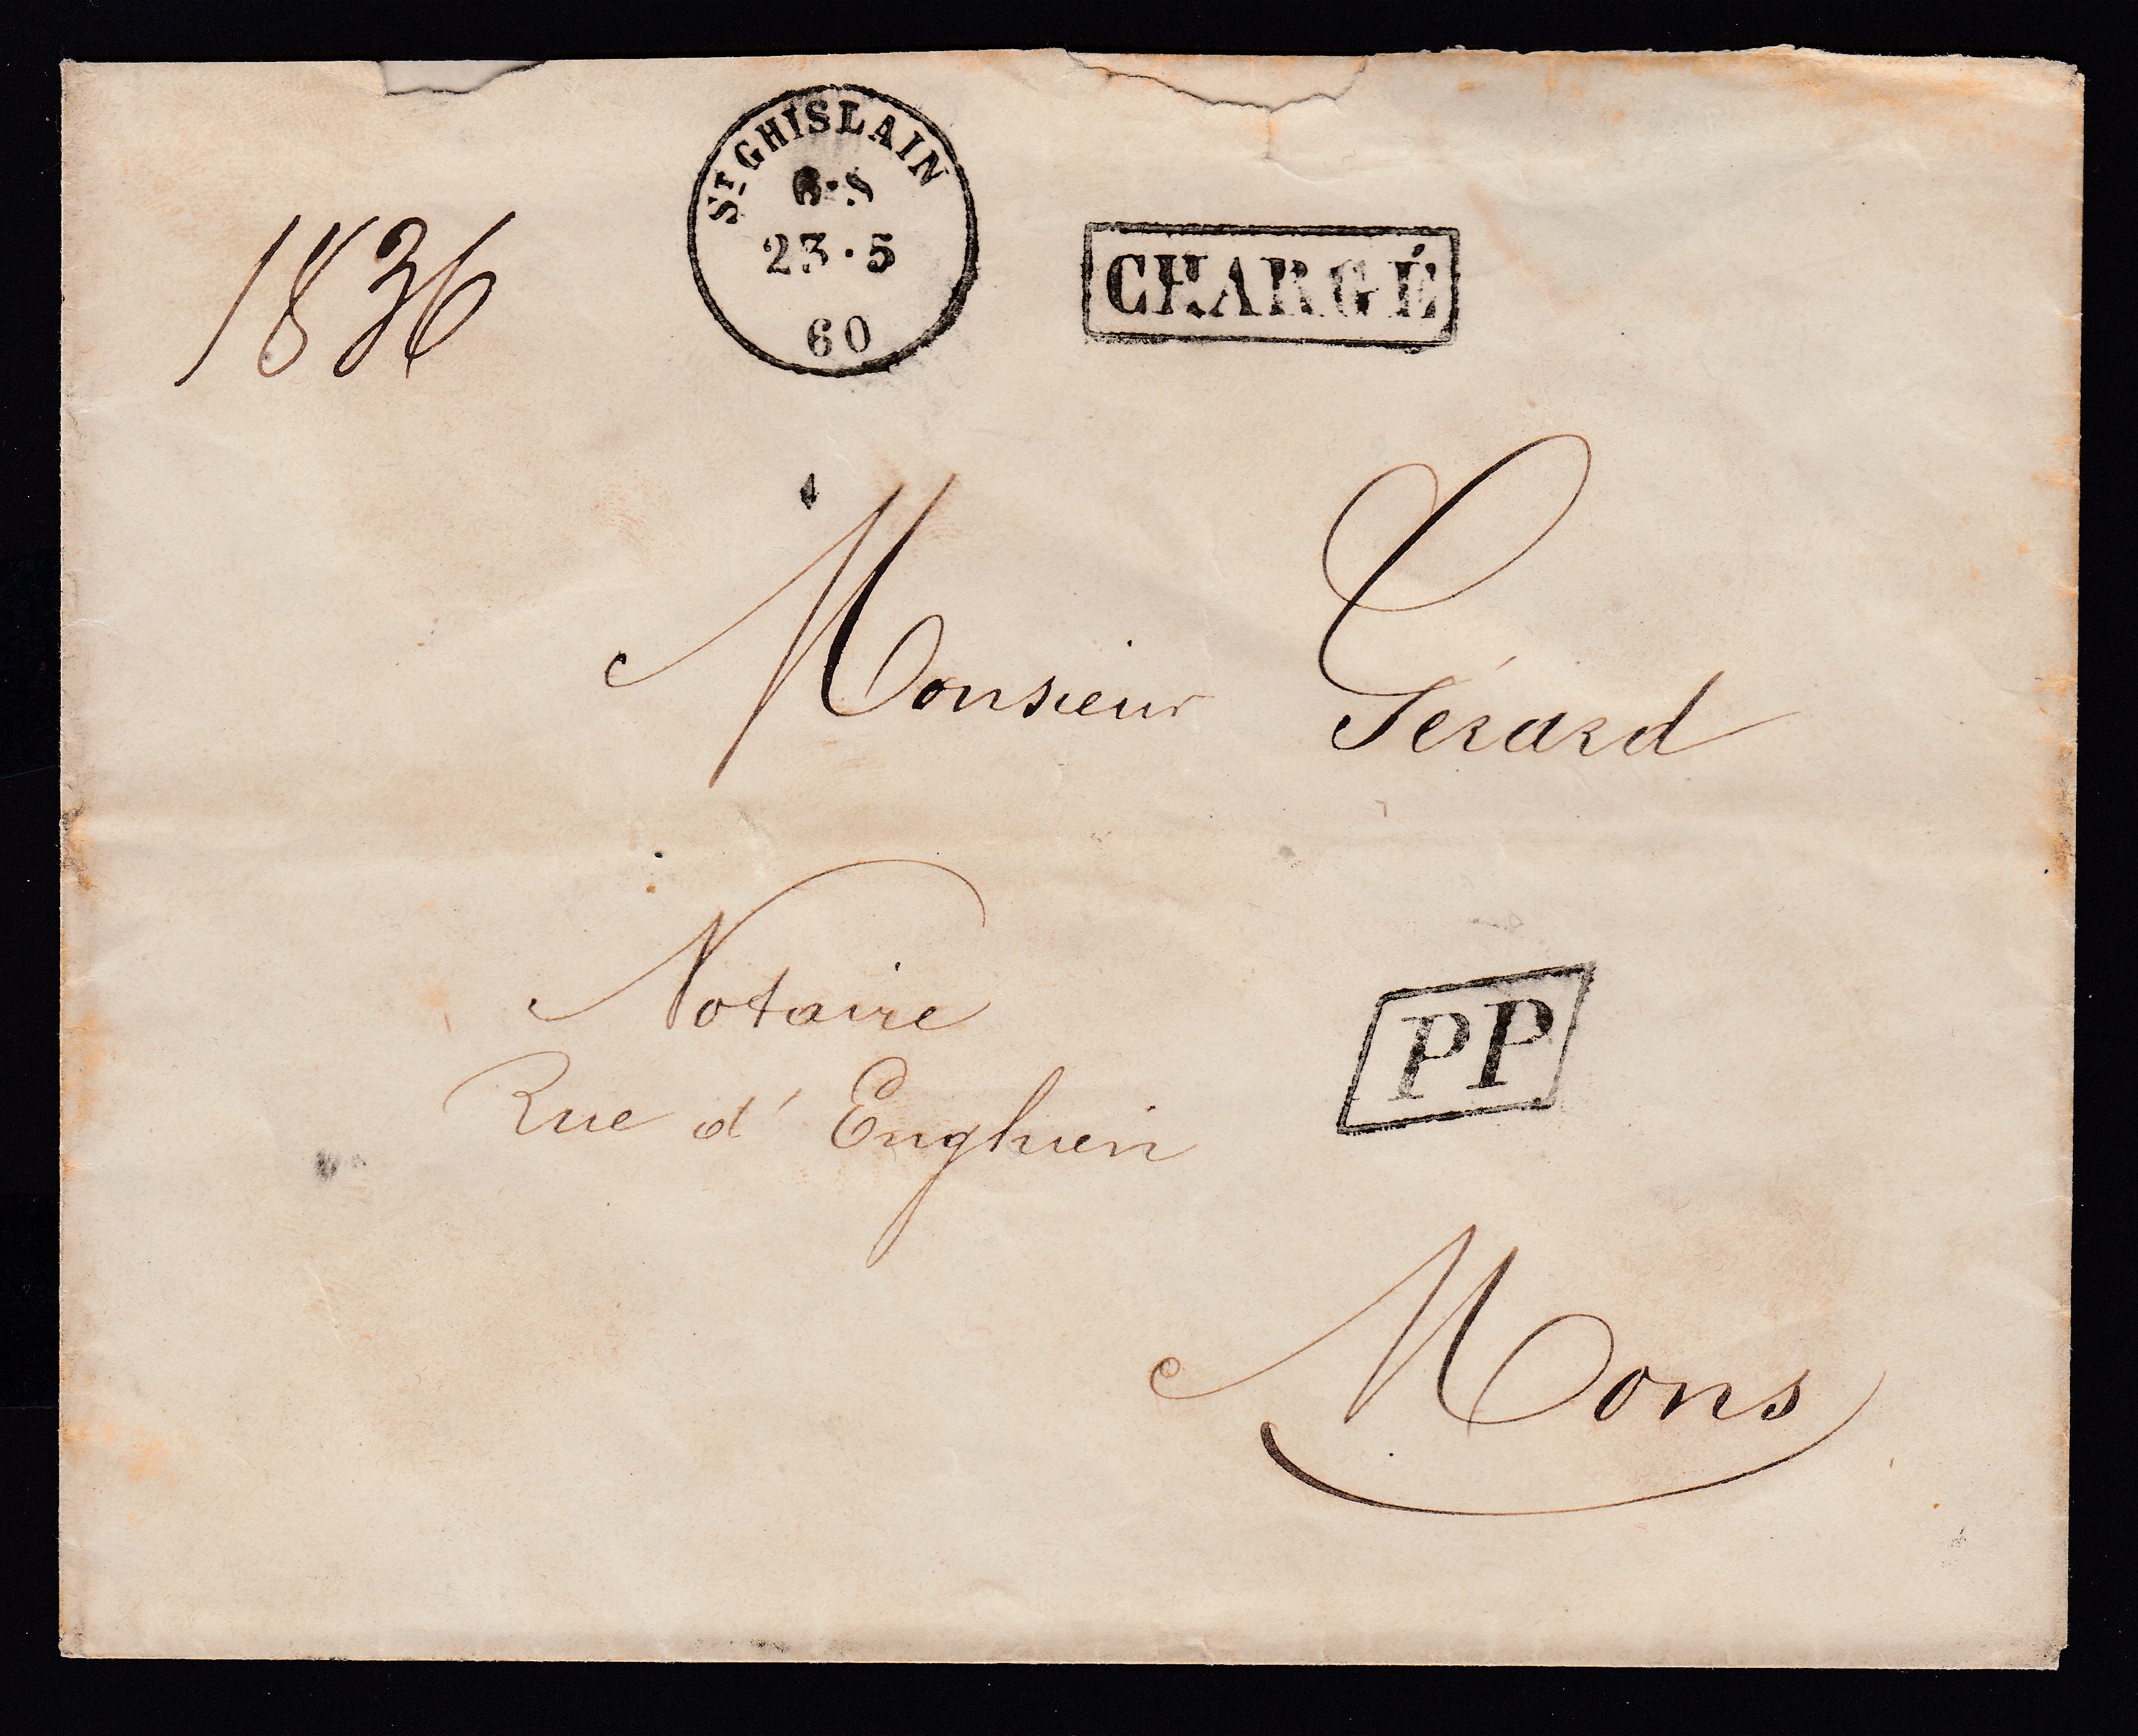 St GHISLAIN
23·5
60
1836
CHARGÉ
Monsieur Gérard
Notaire
Rue d'Enghien
PP
Mons